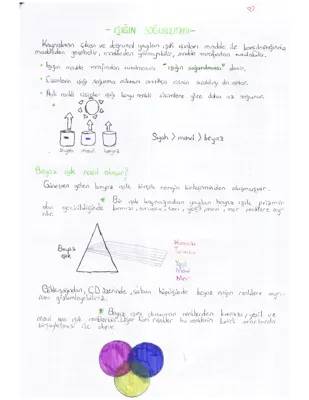 - IŞIĞIN SOĞURULMASI -
Kaynağından çıkan ve doğrusal yayılan ışık ışınları madde ile karşılaştığında
maddeden geçebilir, maddeden yansıyabilir, madde tarafından tutulabilir.
• Işığın madde tarafından tutulmasına "ışığın soğurulması" denir.
• Cisimlerin ışığı soğurma
• Açık renkli cisimler ışığı koyu renkli cisimlere göre daha az soğurur.
siyah mavi beyaz
Siyah > mavi > beyaz
Beyaz ışık nasıl oluşur?
Güneşten gelen beyaz ışık birçok rengin birleşmesinden oluşmuştur.
* Bir ışık kaynağından yayılan beyaz ışık prizma-
dan geçirildiğinde kırmızı, turuncu, sarı, yeşil, mavi, mor renklere ay-
rılır.
Beyaz
ışık
Kırmızı
Turuncu
Yeşil
Mavi
Mor
Gökkuşağından, CD üzerinde, sabun köpüğünde beyaz ışığın renklere ayrıl-
* Beyaz ışığı oluşturan renklerden kırmızı, yeşil ve
mavi ana ışık renkleridir. Diğer tüm renkler bu renklerin belirli oranlarda
ile oluşur.